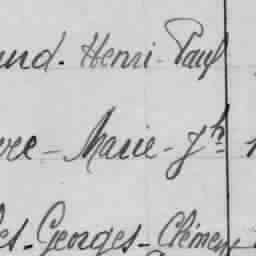 and. Henri-Paul
vre-Marie-Jh
es-Georges-Clémen